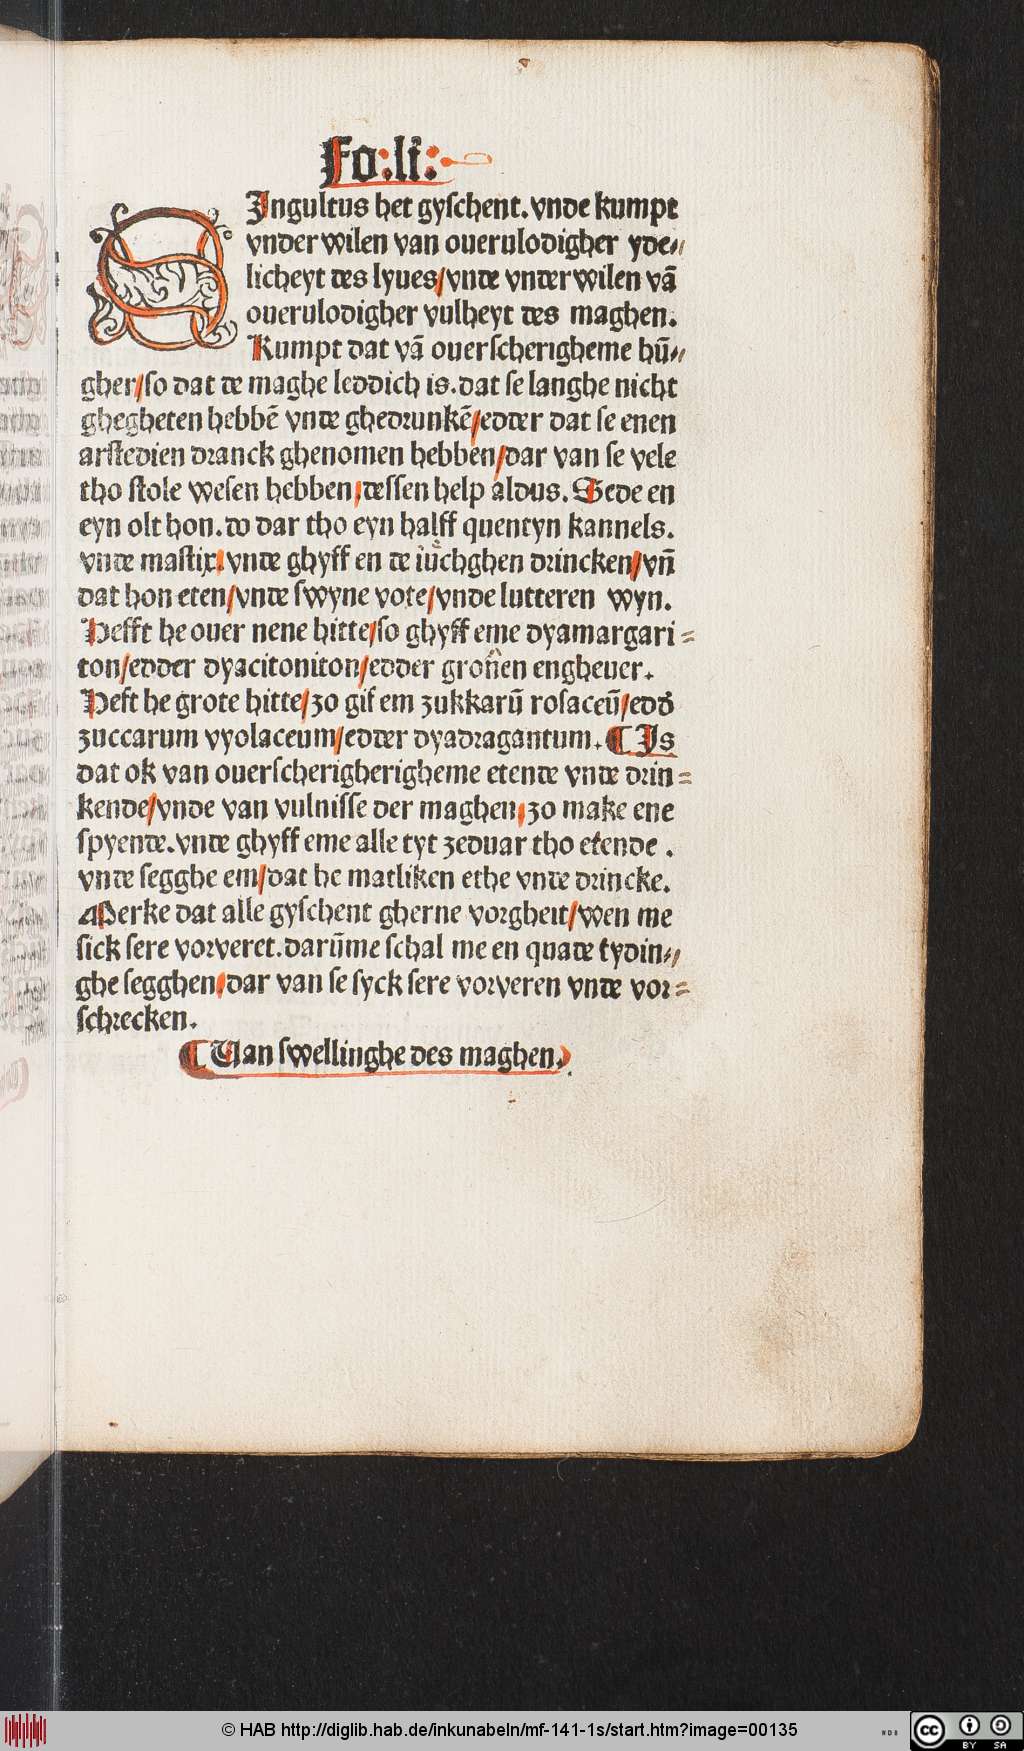 Fo:li:
SIngultus het gyschent. vnde kumpt
vnder wilen van ouerulodigher yde⸗
licheyt des lyues/vnde vnder wilen vā
ouerulodigher vulheyt des maghen.
Kumpt dat vā ouerscherigheme hū⸗
gher/so dat de maghe leddich is. dat se langhe nicht
ghegheten hebbē vnde ghedrunkē/edder dat se enen
arstedien dranck ghenomen hebben/dar van se vele
tho stole wesen hebben/dessen help aldus. Sede en
eyn olt hon. do dar tho eyn halff quentyn kannels.
vnde mastix/vnde ghyff en de iuͤchghen drincken/vn̄
dat hon eten/vnde swyne vote/vnde lutteren wyn.
Hefft he ouer nene hitte/so ghyff eme dyamargari⸗
ton/edder dyacitoniton/edder gronen engheuer.
Heft he grote hitte/zo gif em zukkarū rosaceū/edd'
zuccarum vyolaceum/edder dyadragantum. ¶ Is
dat ok van ouerscherigherigheme etende vnde drin⸗
kende/vnde van vulnisse der maghen/zo make ene
spyende. vnde ghyff eme alle tyt zeduar tho etende .
vnde segghe em/dat he matliken ethe vnde drincke.
Merke dat alle gyschent gherne vorgheit/wen me
sick sere vorveret. darūme schal me en quade tydin⸗
ghe segghen/dar van se syck sere vorveren vnde vor⸗
schrecken.
¶ Uan swellinghe des maghen.
© HAB http://diglib.hab.de/inkunabeln/mf-141-1s/start.htm?image=00135
WDB
cc BY SA